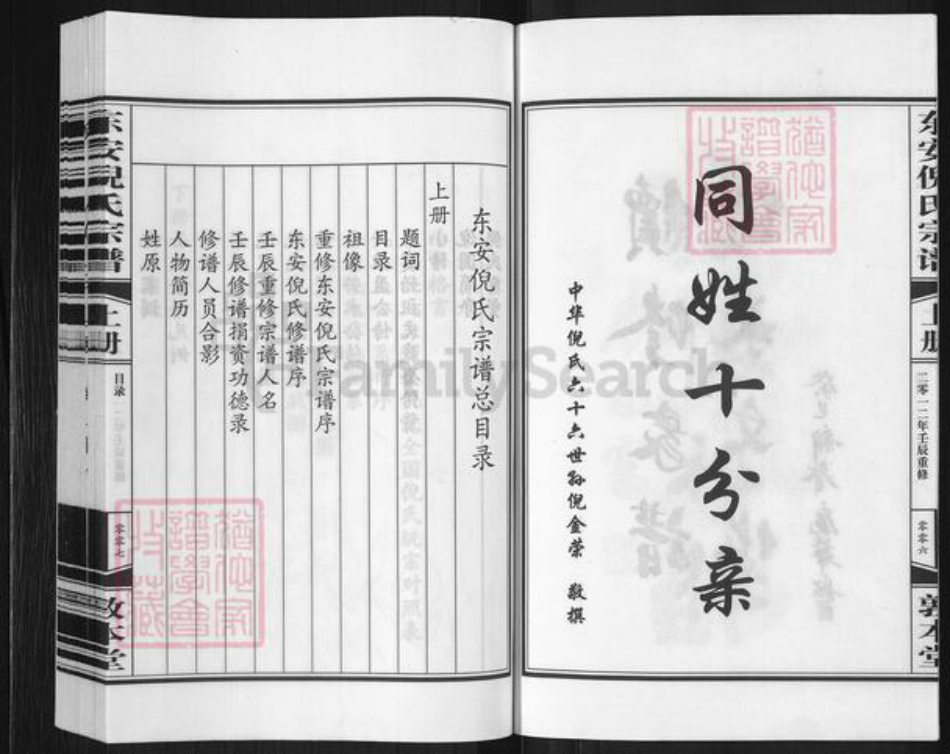 东安倪氏宗谱
上册
二零一二年壬辰重修
零零六
敦本堂
同姓十分亲
中华倪氏六十六世孙倪金荣 敬撰
东安倪氏宗谱总目录
上册
题词
目录
祖像
重修东安倪氏宗谱序
东安倪氏修谱序
壬辰重修宗谱人名
壬辰修谱捐资功德录
修谱人员合影
人物简历
姓原
东安倪氏宗谱
上册
目录
零零七
敦本堂
FamilySearch